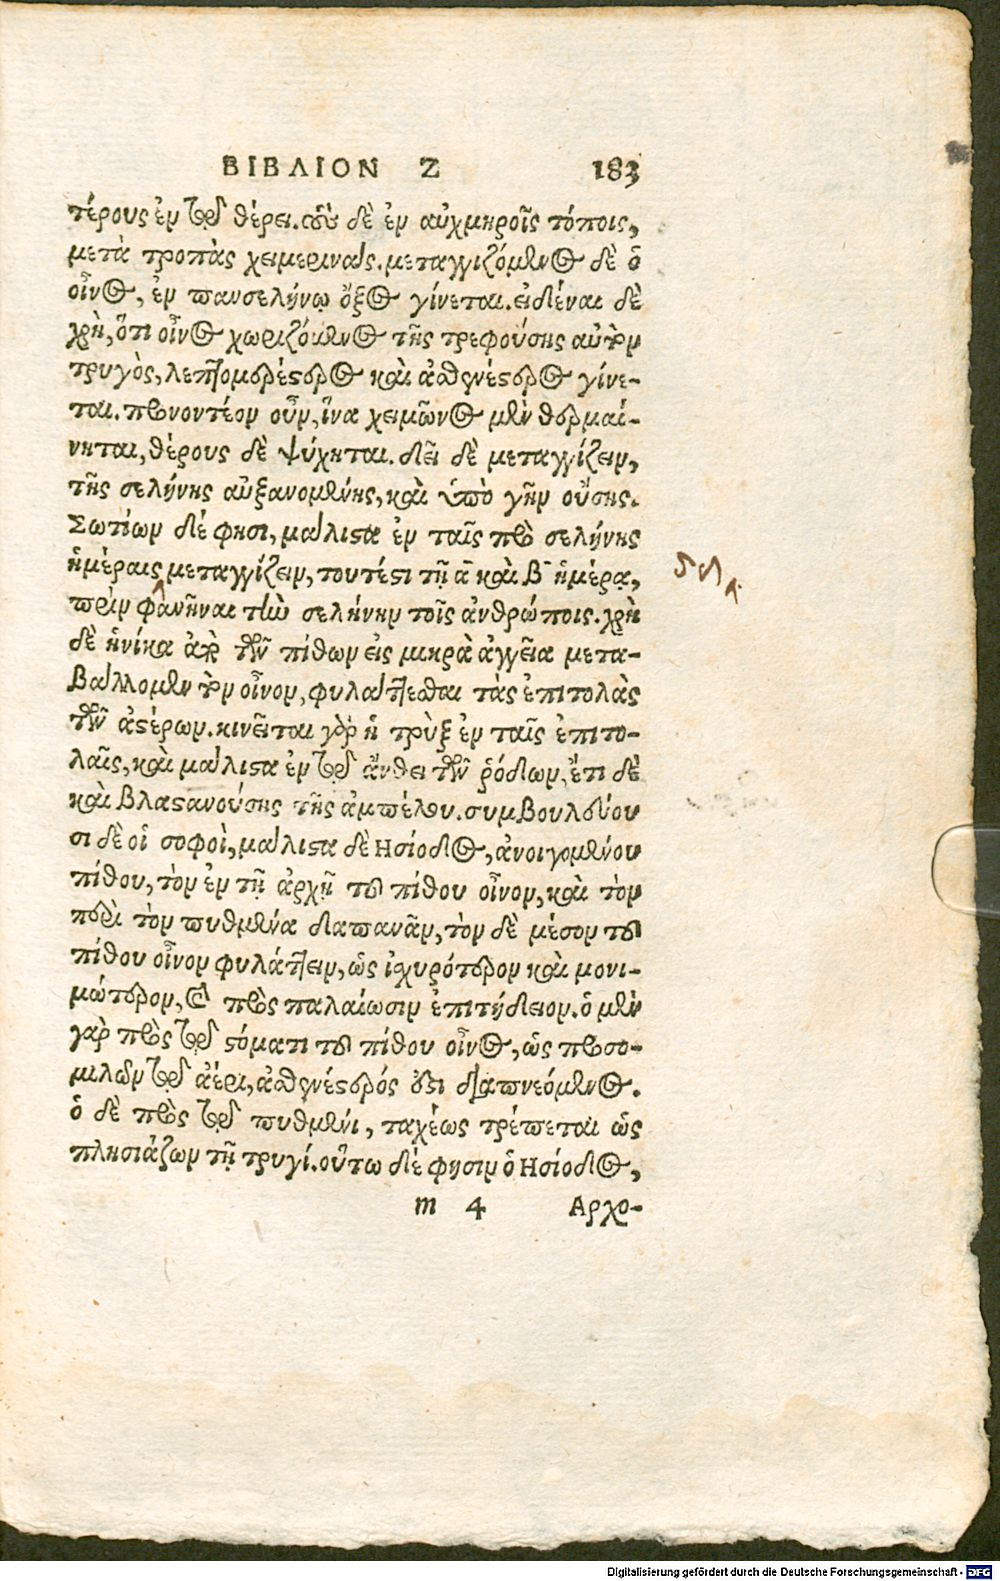 ΒΙΒΛΙΟΝ Ζ 183
τέρους ἐν τῷ θέρει. τοὺς δὲ ἐν αὐχμηροῖς τόποις,
μετὰ τροπὰς χειμερινάς. μεταγγιζόμενος δὲ ὁ
οἶνος, ἐν πανσελήνῳ ὄξος γίνεται. εἰδέναι δὲ
χρὴ, ὅτι οἶνος χωριζόμενος τῆς τρεφούσης αὐτὸν
τρυγὸς, λεπτομερέστερος καὶ ἀσθενέστερος γίνε-
ται. προνοητέον οὖν, ἵνα χειμῶνος μὲν θερμαί-
νηται, θέρους δὲ ψύχηται. δεῖ δὲ μεταγγίζειν,
τῆς σελήνης αὐξανομένης, καὶ ὑπὸ γῆν οὔσης.
Σωτίων δέ φησι, μάλιστα ἐν ταῖς πρὸ σελήνης
ἡμέραις μεταγγίζειν, τουτέστι τῇ α καὶ β ἡμέρᾳ,
πρὶν φανῆναι τὴν σελήνην τοῖς ἀνθρώποις. χρὴ
δὲ ἡνίκα ἀπὸ τῶν πίθων εἰς μικρὰ ἀγγεῖα μετα-
βάλλομεν τὸν οἶνον, φυλάττεσθαι τὰς ἐπιτολὰς
τῶν ἀστέρων. κινεῖται γὰρ ἡ τρὺξ ἐν ταῖς ἐπιτο-
λαῖς, καὶ μάλιστα ἐν τῷ ἄνθει τῶν ῥόδων, ἔτι δὲ
καὶ βλαστανούσης τῆς ἀμπέλου. συμβουλεύου
σι δὲ οἱ σοφοὶ, μάλιστα δὲ Ησίοδος, ἀνοιγομένου
πίθου, τὸν ἐν τῇ ἀρχῇ τοῦ πίθου οἶνον, καὶ τὸν
περὶ τὸν πυθμένα δαπανᾶν, τὸν δὲ μέσον τοῦ
πίθου οἶνον φυλάττειν, ὡς ἰσχυρότερον καὶ μονι-
μώτερον, καὶ πρὸς παλαίωσιν ἐπιτήδειον. ὁ μὲν
γὰρ πρὸς τῷ στόματι τοῦ πίθου οἶνος, ὡς προσο-
μιλῶν τῷ ἀέρι, ἀσθενέστερός ἐστι διαπνεόμενος.
ὁ δὲ πρὸς τῷ πυθμένι, ταχέως τρέπεται ὡς
πλησιάζων τῇ τρυγί. οὕτω δέ φησιν ὁ Ησίοδος,
m 4 Αρχο-
Digitalisierung gefördert durch die Deutsche Forschungsgemeinschaft - DFG